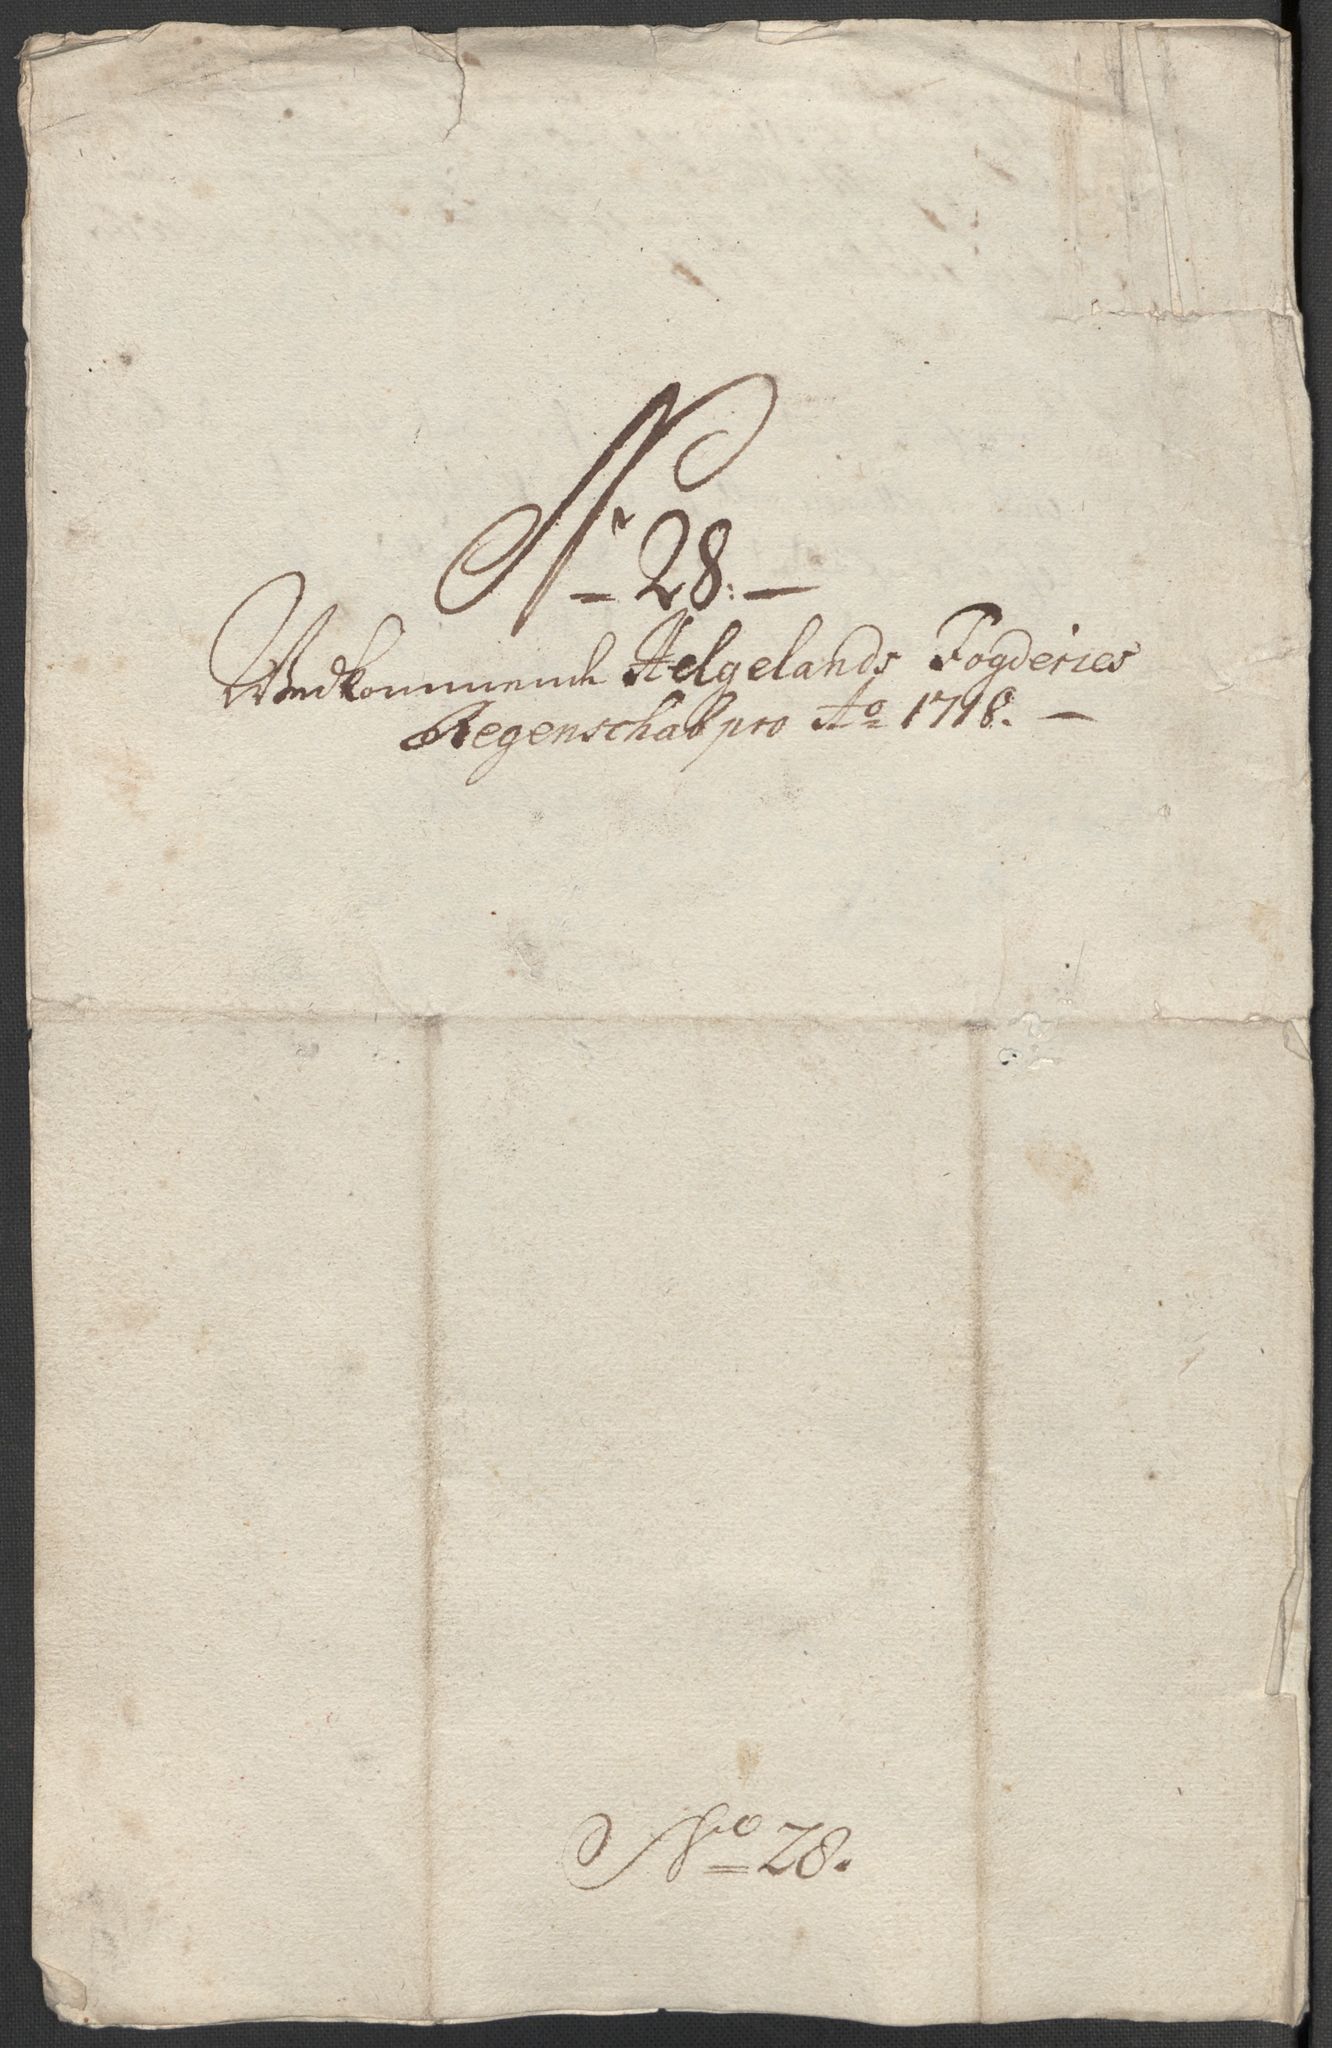 Nr
- 28. -
Vedkommende Helgelands Fogderies
Regenschab pro Ao 1718. -
No 28.